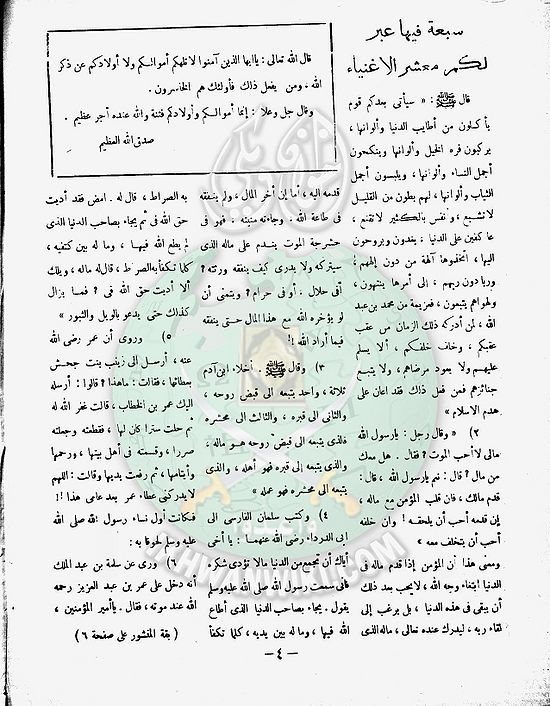 سبعة فيها عبر
لكم معشر الأغنياء
قال الله تعالى : ياأيها الذين آمنوا لاتلهكم أموالكم ولا أولادكم عن ذكر
الله ، ومن يفعل ذلك فأولئك هم الخاسرون .
وقال جل وعلا : إنما أموالكم وأولادكم فتنة والله عنده أجر عظيم .
صدق الله العظيم
قال ﷺ : « سيأتى بعدكم قوم
يأكلون من أطايب الدنيا وألوانها ،
يركبون فره الخيل وألوانها ، وينكحون
أجمل النساء وألوانها ، ويلبسون أجمل
الثياب وألوانها ، لهم بطون من القليل
لاتشبع ، ونفس بالكثير لاتقنع ،
عاكفين على الدنيا ، يغدون ويروحون
اليها ، اتخذوها آلهة من دون إلههم ،
وربا دون ربهم ، إلى أمرها ينتهون ،
ولهواهم يتبعون ، فعزيمة من محمد بن عبد
الله ، لمن أدركه ذلك الزمان من عقب
عقبكم ، وخلف خلفكم ، ألا يسلم
عليهم ولا يعود مرضاهم ، ولا يتبع
جنائزهم فمن فعل ذلك فقد اعان على
هدم الاسلام »
٢) « وقال رجل : يارسول الله
مالى لاأحب الموت ؟ فقال . هل معك
من مال ؟ قال : نعم يارسول الله ، قال :
قدم مالك ، فان قلب المؤمن مع ماله ،
إن قدمه أحب أن يلحقه ! وان خلفه
أحب أن يتخلف معه »
ومعنى هذا أن المؤمن إذا قدم ماله فى
الدنيا ابتغاء وجه الله ، لايحب بعد ذلك
أن يبقى فى هذه الدنيا ، بل يرغب إلى
لقاء ربه ، ليدرك عنده تعالى ، ماله الذى
قدمه اليه ، أما إن أخر المال ، ولم ينفقه
فى طاعة الله . وجاءته منيته . فهو فى
حشرجة الموت يندم على ماله الذى
سيتركه ولا يدرى كيف ينفقه ورثته ؟
أفى حلال . أو فى حرام ؟ ويتمنى أن
لو يؤخره الله مع هذا المال حتى ينفقه
فيما أراد الله !!
٣) وقال ﷺ . أخلاء ابن آدم
ثلاثة ، واحد يتبعه الى قبض روحه ،
والثانى الى قبره ، والثالث الى محشره .
فالذى يتبعه الى قبض روحه هو ماله ،
والذى يتبعه إلى قبره فهو أهله ، والذى
يتبعه الى محشره فهو عمله »
٤) وكتب سلمان الفارسى الى
ابى الدرداء رضى الله عنهما : يا أخى
أياك أن تجمع من الدنيا مالا تؤدى شكره
فانى سمعت رسول الله صلى الله عليه وسلم
يقول . يجاء بصاحب الدنيا الذى أطاع
الله فيها ، وما له بين يديه ، كلما تكفأ
به الصراط ، قال له . امض فقد أديت
حق الله فى ثم يجاء بصاحب الدنيا الذى
لم يطع الله فيها ، وما له بين كتفيه ،
كلما تكفأ به الصراط ، قال له ماله ، ويلك
ألا أديت حق الله فى ؟ فما يزال
كذلك حتى يدعو بالويل والثبور »
٥) وروى أن عمر رضى الله
عنه ، أرسل الى زينب بنت جحش
بعطائها ، فقالت : ماهذا ؟ قالوا : أرسله
اليك عمر بن الخطاب ، قالت غفر الله له
ثم حلت سترا كان لها ، فقطعته وجعلته
صررا ، وقسمته فى أهل بيتها ، ورحمها
وأيتامها ، ثم رفعت يديها وقالت : اللهم
لايدركنى عطاء عمر بعد عامى هذا !!
فكانت أول نساء رسول الله صلى الله
عليه وسلم لحوقا به :
٦) وروى عن سلمة بن عبد الملك
أنه دخل على عمر بن عبد العزيز رحمه
الله عند موته ، فقال . ياأمير المؤمنين ،
( بقة المنشور على صفحة ٦ )
– ٤ –